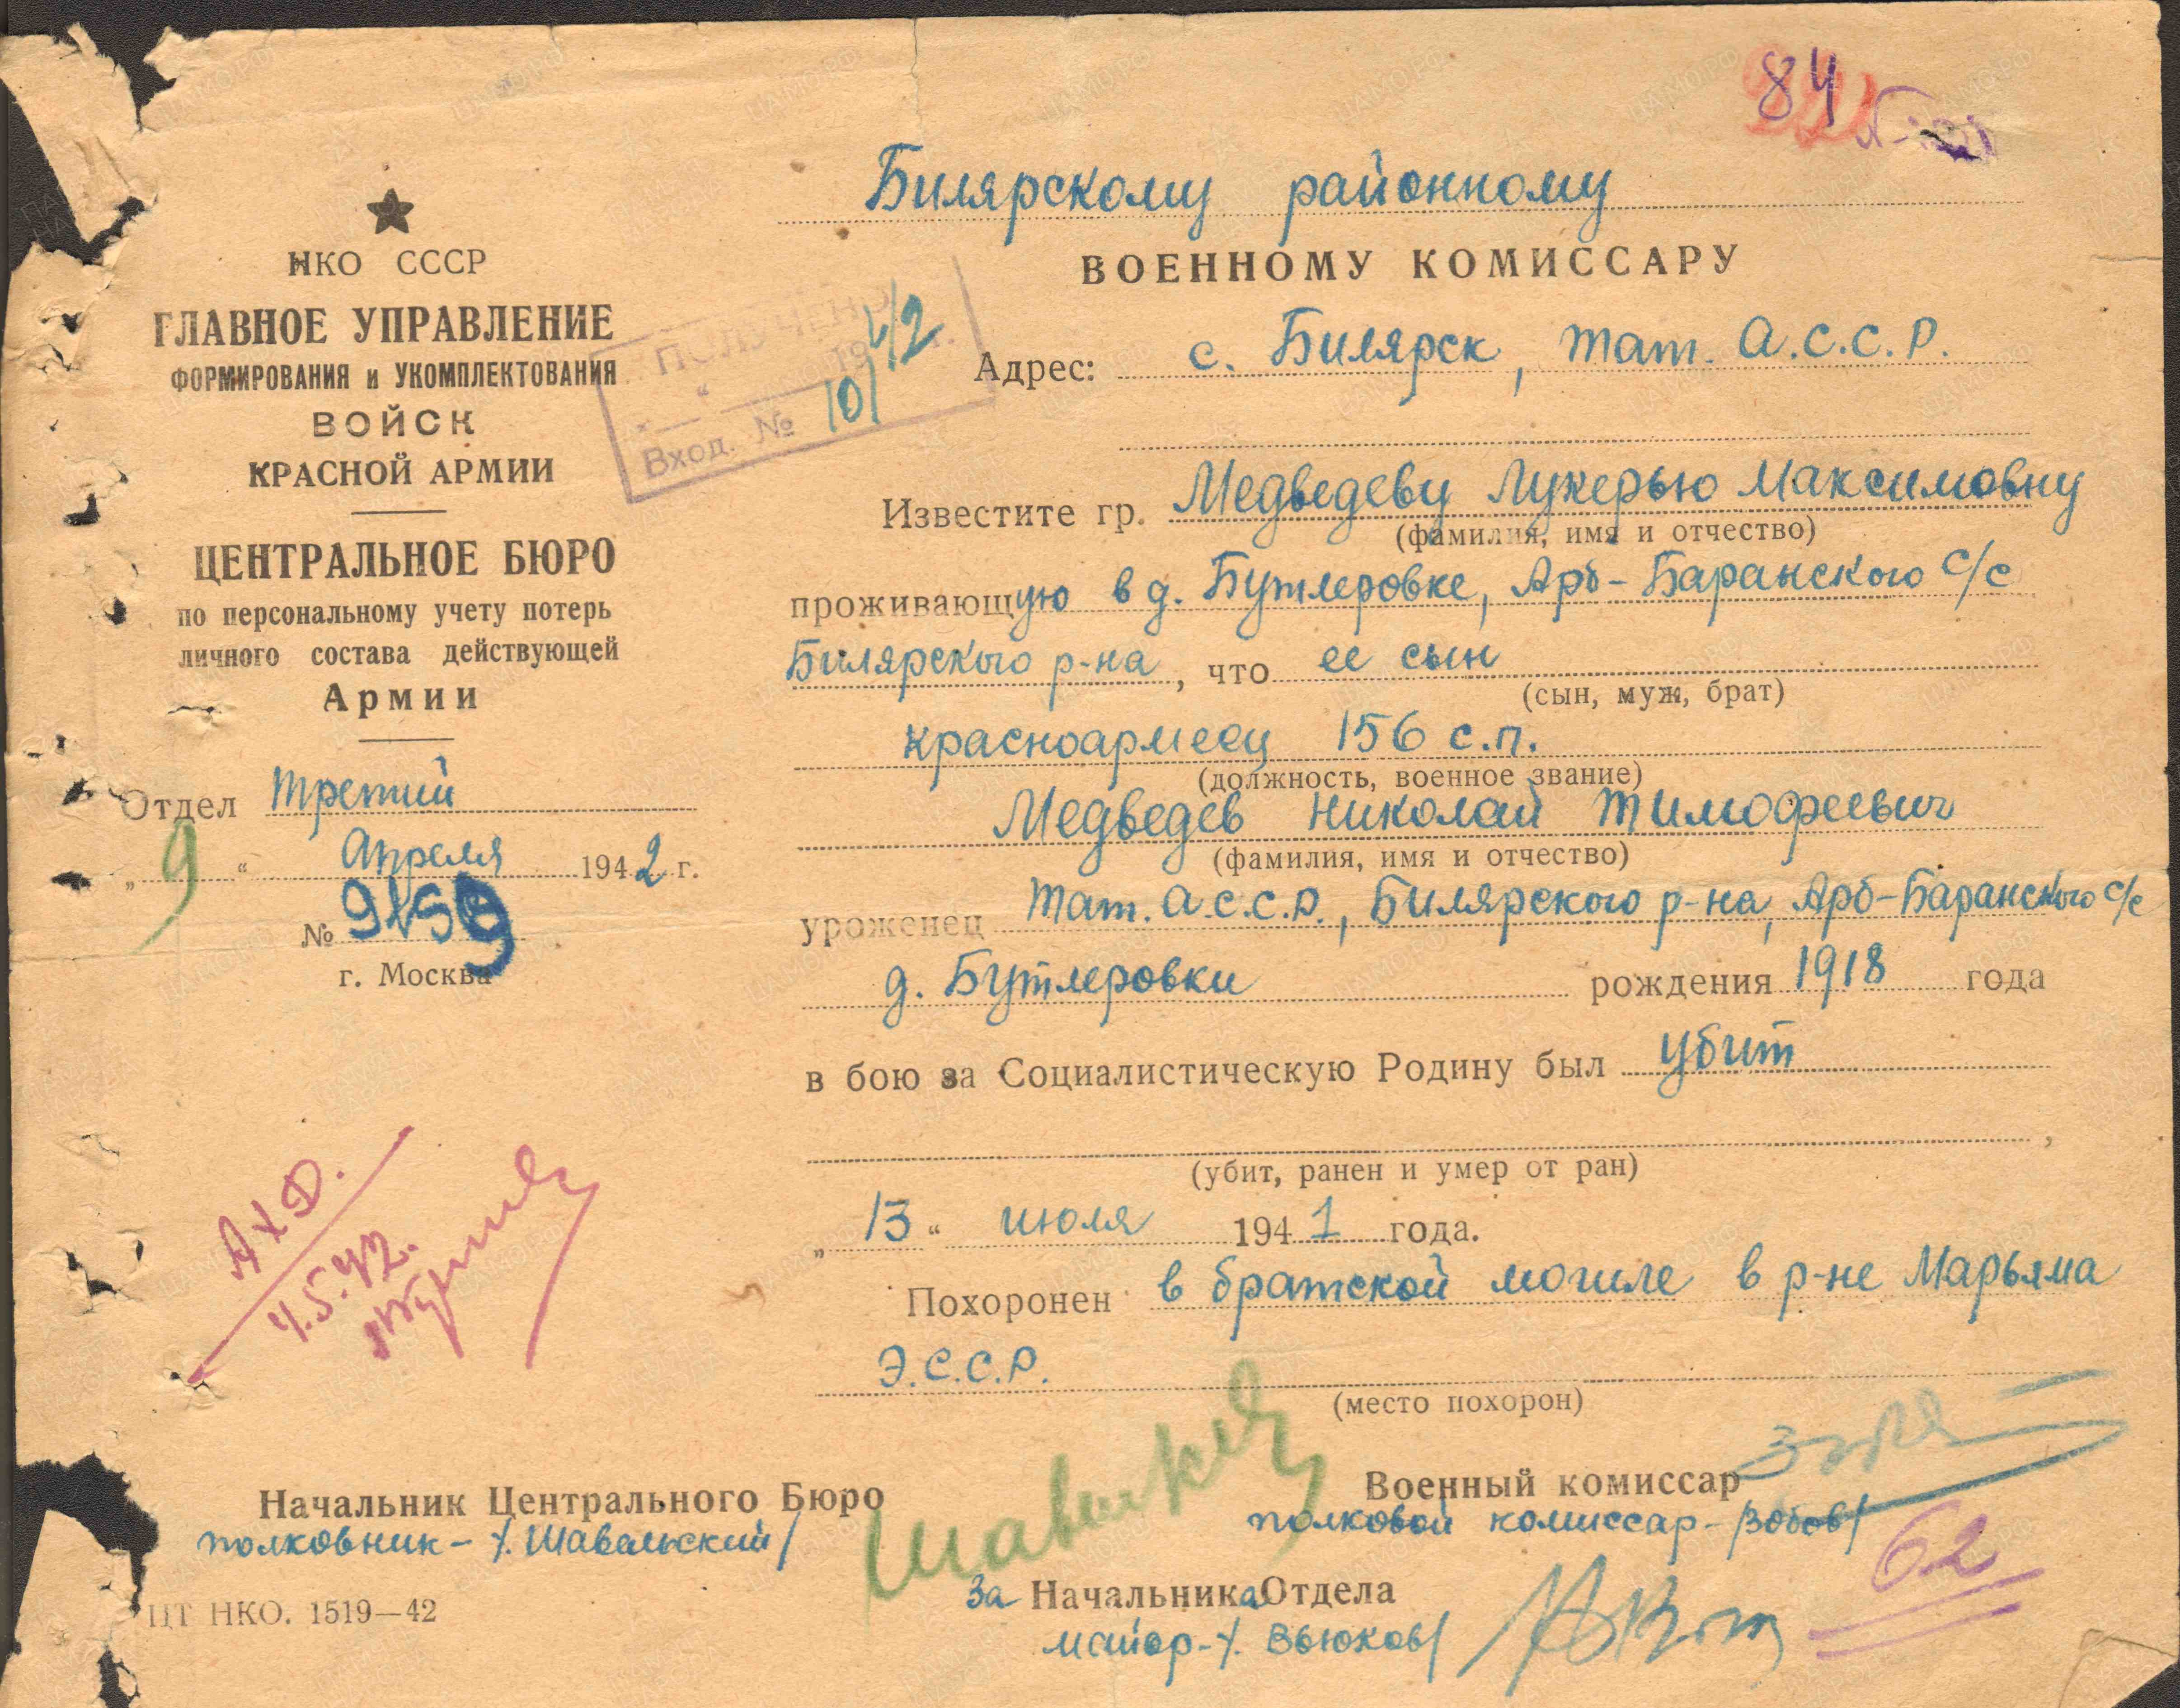 84
НКО СССР
ГЛАВНОЕ УПРАВЛЕНИЕ
ФОРМИРОВАНИЯ и УКОМПЛЕКТОВАНИЯ
ВОЙСК
КРАСНОЙ АРМИИ
ЦЕНТРАЛЬНОЕ БЮРО
по персональному учету потерь
личного состава действующей
Армии
Отдел третий
„9“ Апреля 1942 г.
№
г. Москва
ПОЛУЧЕНО
Вход. №
Билярскому районному
ВОЕННОМУ КОМИССАРУ
Адрес: с. Билярск, Тат. А.С.С.Р.
Известите гр. Медведеву Лукерью Максимовну
(фамилия, имя и отчество)
проживающую в д. Бутлеровке, Арб-Баранского с/с
Билярского р-на, что ее сын
(сын, муж, брат)
красноармеец 156 с.п.
(должность, военное звание)
Медведев Николай Тимофеевич
(фамилия, имя и отчество)
уроженец Тат. А.С.С.Р., Билярского р-на, Арб-Баранского с/с
д. Бутлеровки рождения 1918 года
в бою за Социалистическую Родину был убит
,
(убит, ранен и умер от ран)
„13“ июля 1941 года.
Похоронен в братской могиле в р-не Марьяма
Э.С.С.Р.
(место похорон)
АХО.
4.5.42.
Начальник Центрального Бюро
полковник - /. Шавельский/
ЦТ НКО. 1519—42
Военный комиссар
полковой комиссар - /Зобов/
62
За Начальника Отдела
майор - /. Вьюков/